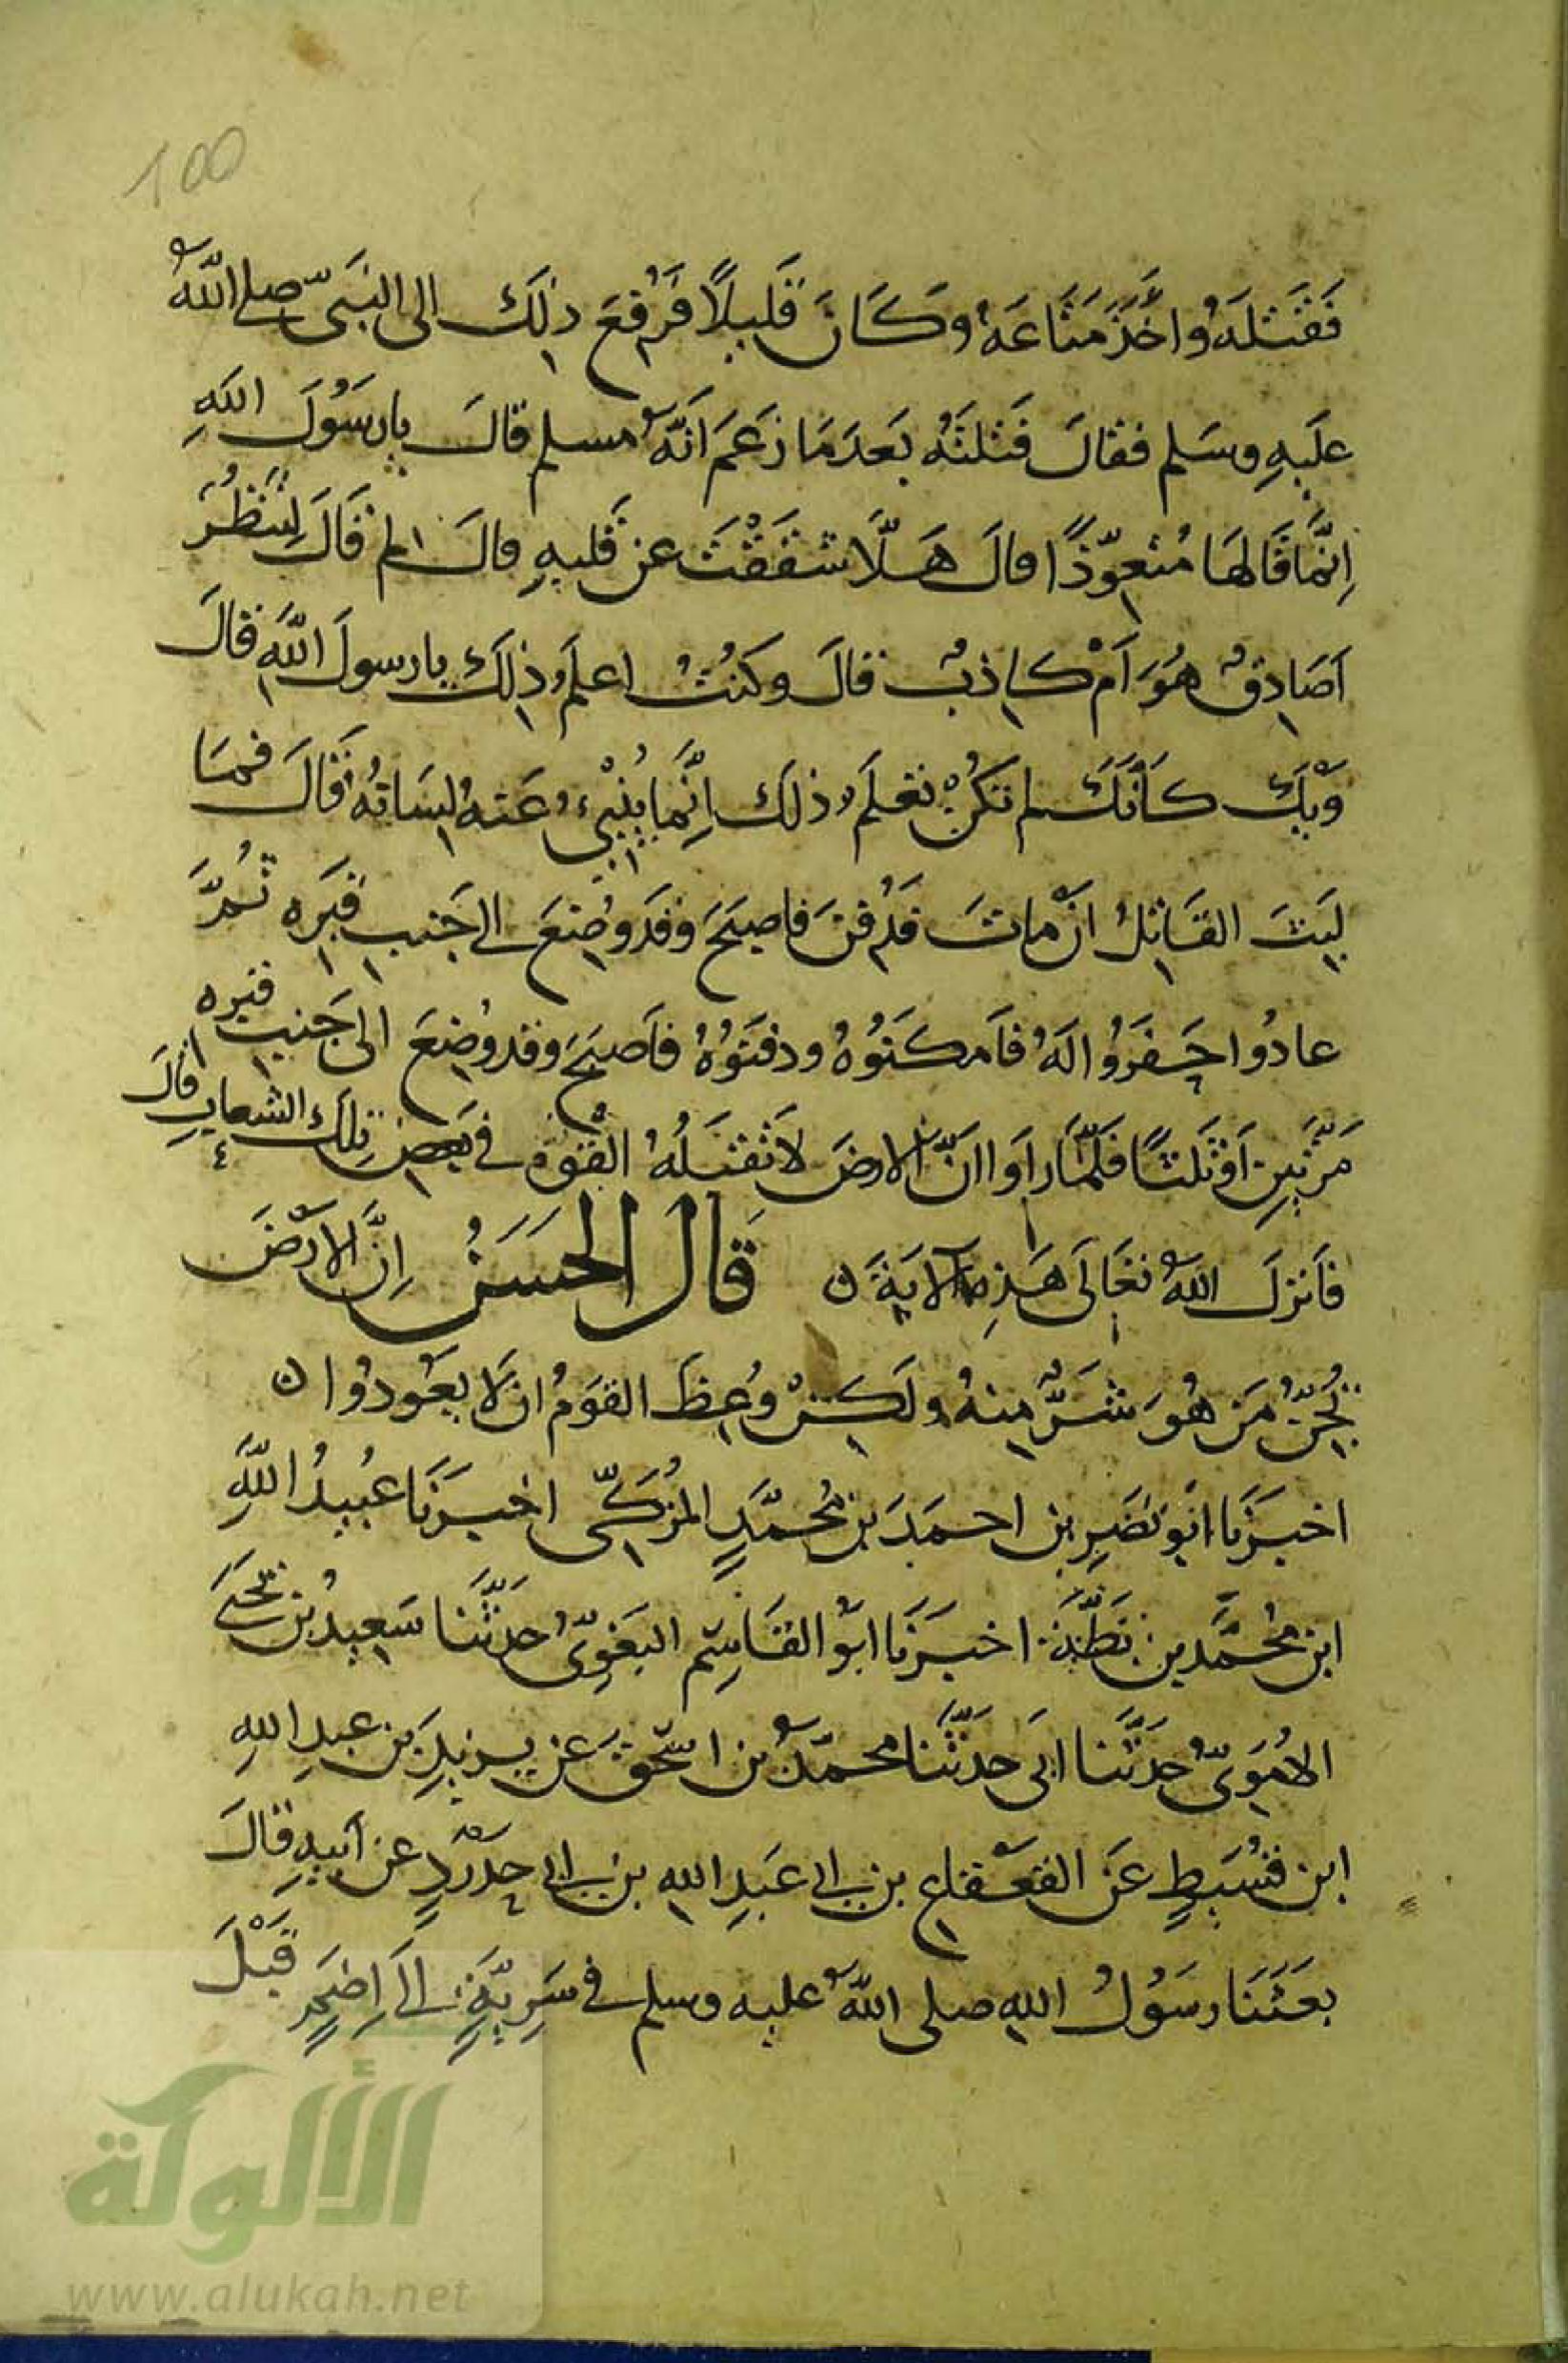 100
فَقَتَلَهُ وَاخَذَ مَتَاعَهُ وَكَانَ قَلِيلًا فَرُفِعَ ذلِكَ الى النَبيّ صلى اللّهُ
عَلَيهِ وسَلم فقالَ قَتَلتَهُ بَعدَ مَا زَعَمَ اَنّهُ مسلم قالَ يا رسَوُلَ اللهِ
اِنَّمَا قَالهَا مُتعوِّذًا قالَ هَلَّا شَقَقْتَ عن قَلبهِ قالَ لم قَالَ لِتَنظُرَ
اَصَادِقٌ هُوَ اَمْ كاذِبٌ قالَ وكنُتُ اعلَمُ ذلِكَ يا رسولَ اللّهِ قالَ
وَيْكَ كَأَنّكَ لم تَكُنْ تعلَمُ ذلكَ اِنَّما يُنْبِيُ عَنهُ لِسَانهُ قَالَ فمَا
لَبِثَ القَاتِلُ انْ ماتَ فَدُفنَ فاصبَحَ وَقَد وُضِعَ الى جَنبِ قَبره ثُمَّ
عادُوا حفَرَوُا لَهُ فَامكَنَوُهُ ودفَنَوُهُ فاَصبَحَ وقد وُضِعَ الى جَنبِ قبره
مَرّتَينِ اَوْ ثَلثًا فَلَمَّا رَاَوا انَّ الارضَ لَا تقبَلُهُ القَوْهُ في بَعضِ تِلكَ الشعابِ قالَ
فاَنزلَ اللّهُ تعَالَى هَذِهِ الآيَةَ ن قَالَ الحَسَنُ اِنَّ الاَرْضَ
تُجِنُّ مَن هُوَ شَرٌّ مِنهُ ولَكِنْ وُعِظَ القَومُ ان لَا يَعُودُوا ن
اخبَرَنَا ابَو نصَرِ بن احمَدَ بن مُحمَّدٍ المزُكّى اخبَرَنَا عُبيدُ اللَّهِ
ابن مُحمَّد بن بَطّةَ اخبَرَنَا ابَوُ القَاسِم البَغوِيّ حَدثنَا سَعيدُ بن يَحيَى
الاُمَوِيّ حَدّثَنا ابَى حَدّثَنا محمّدُ بن اسحٰقَ عن يزيدِ بن عبدِ اللهِ
ابن قسُيَطٍ عَن القعقاع بن ابى عَبدِ اللهِ بن ابى حدرَدٍ عن اَبيهِ قالَ
بعَثنَا رسَوُلُ اللهِ صلى اللّهُ عليه وسلم في سَرِيّةٍ اِلَى اِضَمٍ قَبْلَ
الألوكة
www.alukah.net